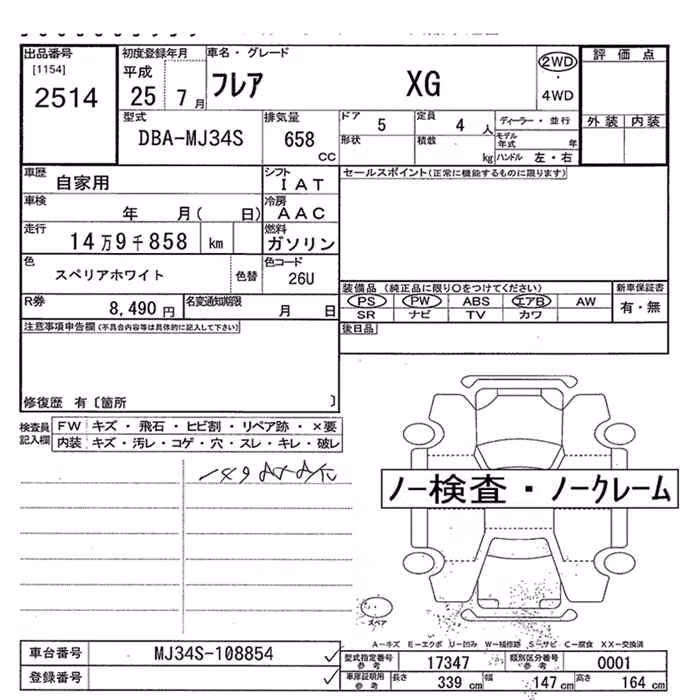 出品番号
[1154]
2514
初度登録年月
平成
25 7月
車名・グレード
フレア XG
2WD
・
4WD
評価点
外装 内装
型式
DBA-MJ34S
排気量
658 CC
ドア 5
定員 4 人
ディーラー・並行
形状
積載 kg
モデル年式 年
ハンドル 左・右
車歴
自家用
シフト
IAT
セールスポイント(正常に機能するものに限ります)
車検
年 月( 日)
冷房
AAC
走行
14万9千858 km
燃料
ガソリン
色
スペリアホワイト
色替
色コード
26U
装備品 (純正品に限り○をつけてください)
新車保証書
PS PW ABS エアB AW
有・無
SR ナビ TV カワ
R券
8,490 円
名変通知期限
月 日
後日品
注意事項申告欄(不具合内容等は具体的に記入して下さい)
修復歴 有〔箇所 〕
検査員記入欄
FW キズ・飛石・ヒビ割・リペア跡・×要
内装 キズ・汚レ・コゲ・穴・スレ・キレ・破レ
ノー検査・ノークレーム
スペア
A―キズ E―エクボ U―凹み W―補修跡 S―サビ C―腐食 XX―交換済
車台番号
MJ34S-108854
登録番号
型式指定番号参考
17347
類別区分番号参考
0001
車庫証明用参考
長さ 339 cm
幅 147 cm
高さ 164 cm